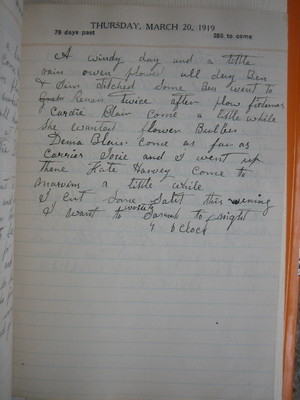 THURSDAY, MARCH 20, 1919
78 days past 286 to come
A windy day and a little
rain owen plowed all day Ben
& Jim ditched Some Ben went to
Renan twice after plow fixtures
Carrie Blair Come a little while
She wanted flower Bulbs
Dema Blair Come as far as
Carrier Josie and I went up
there Kate Harvey Come to
marvins a little while
I Cut Some this evening
I want to to night
9 o Clock